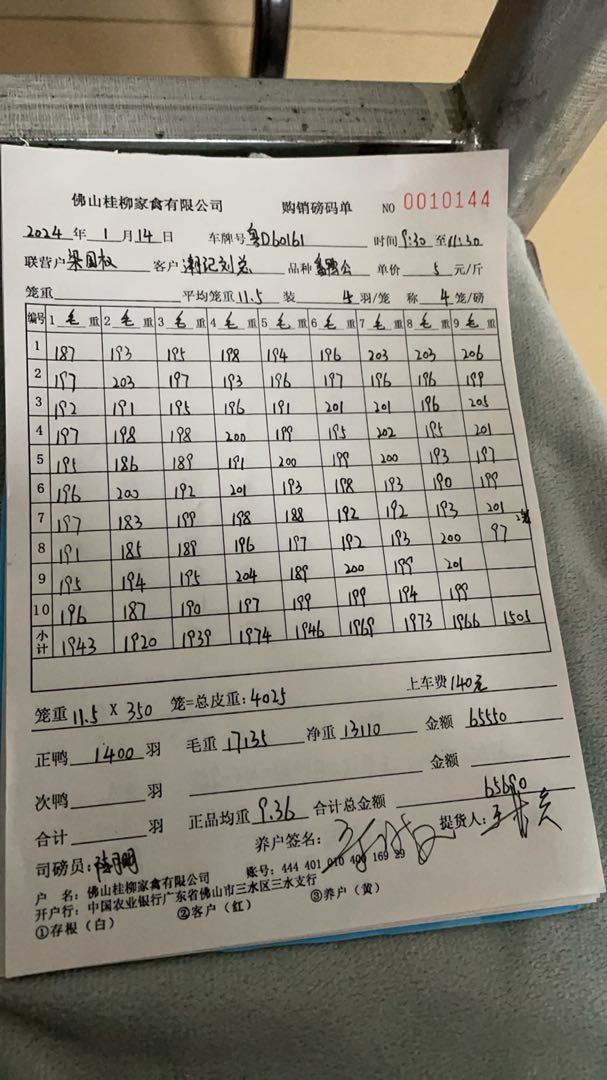 佛山桂柳家禽有限公司 购销磅码单 NO 0010144
2024 年 1 月 14 日 车牌号 粤D60161 时间 9:30 至 11:30
联营户 梁国权 客户 潮记刘总 品种 公 单价 5 元/斤
笼重 平均笼重 11.5 装 4 羽/笼 称 4 笼/磅
编号 1 毛 重 2 毛 重 3 毛 重 4 毛 重 5 毛 重 6 毛 重 7 毛 重 8 毛 重 9 毛 重
1 187 193 195 198 194 196 203 203 206
2 197 203 197 193 196 197 196 196 199
3 192 191 195 196 191 201 201 196 205
4 197 198 198 200 199 195 202 195 201
5 195 186 189 191 200 199 200 193 197
6 196 200 192 201 193 198 193 190 199
7 197 183 199 198 188 192 192 193 201
8 191 185 189 196 197 192 193 200 97 2笼
9 195 194 195 204 189 200 199 201
10 196 187 190 197 199 199 194 199
小计 1943 1920 1939 1974 1946 1969 1973 1966 1505
笼重 11.5 × 350 笼=总皮重: 4025 上车费 140元
正鸭 1400 羽 毛重 17135 净重 13110 金额 65550
次鸭 羽 金额
合计 羽 正品均重 9.36 合计总金额 65690
司磅员: 养户签名: 提货人:
户 名: 佛山桂柳家禽有限公司 账号: 444 401 010 400 169 29
开户行: 中国农业银行广东省佛山市三水区三水支行
①存根(白) ②客户(红) ③养户(黄)